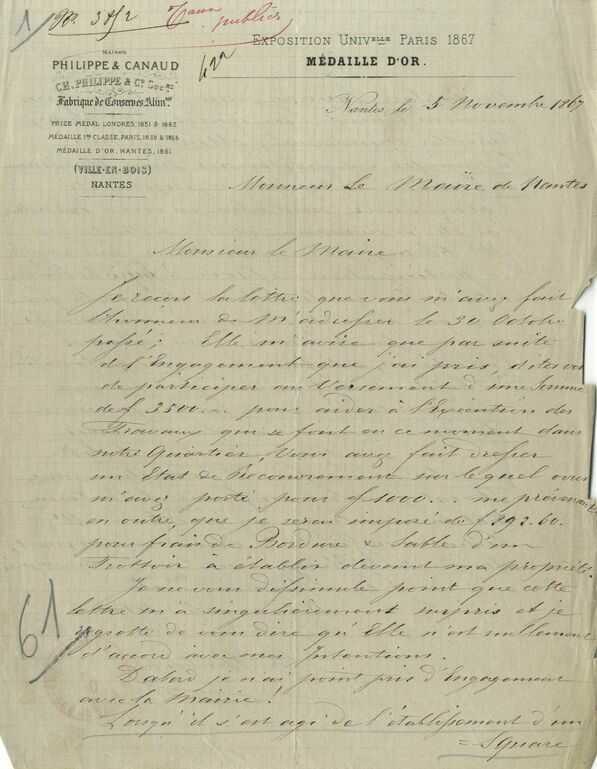 1)
Travaux
publics
42a
MAISON
PHILIPPE & CANAUD
CH. PHILIPPE & Cie Sucrs
Fabrique de Conserves Alimres
PRIZE MEDAL LONDRES, 1851 & 1862
MÉDAILLE 1re CLASSE, PARIS, 1839 & 1855
MÉDAILLE D'OR, NANTES, 1861
(VILLE-EN-BOIS)
NANTES
EXPOSITION UNIVELLE PARIS 1867
MÉDAILLE D'OR.
Nantes, le 5 Novembre 1867
Monsieur Le Maïre de Nantes
Monsieur le Maire
Je recois la lettre que vous m'avez fait
l'honneur de M'adresser le 30 Octobre
passé; Elle m'avise que par suite
de l'Engagement que j'ai pris, dites vous
de participer au Versement d'une Somme
de f 3500... pour aider à l'Exécution des
Travaux que se font en ce moment dans
notre Quartier, Vous avez fait dresser
un Etat de Recouvrement sur lequel vous
m'avez porté pour f 1000... me prévenant
en outre, que je serai imposé de f 392.60.
pour frais de Bordure & Sable d'un
Trottoir à établir devant ma propriété.
Je ne vous dissimule point que cette
lettre m'a singulièrement surpris et je
regrette de vous dire qu'Elle n'est nullement
d'accord avec mes Intentions.
D'abord je n'ai point pris d'Engagement
avec la Mairie!
Lorsqu'il s'est agi de l'établissement d'un
= Square
61